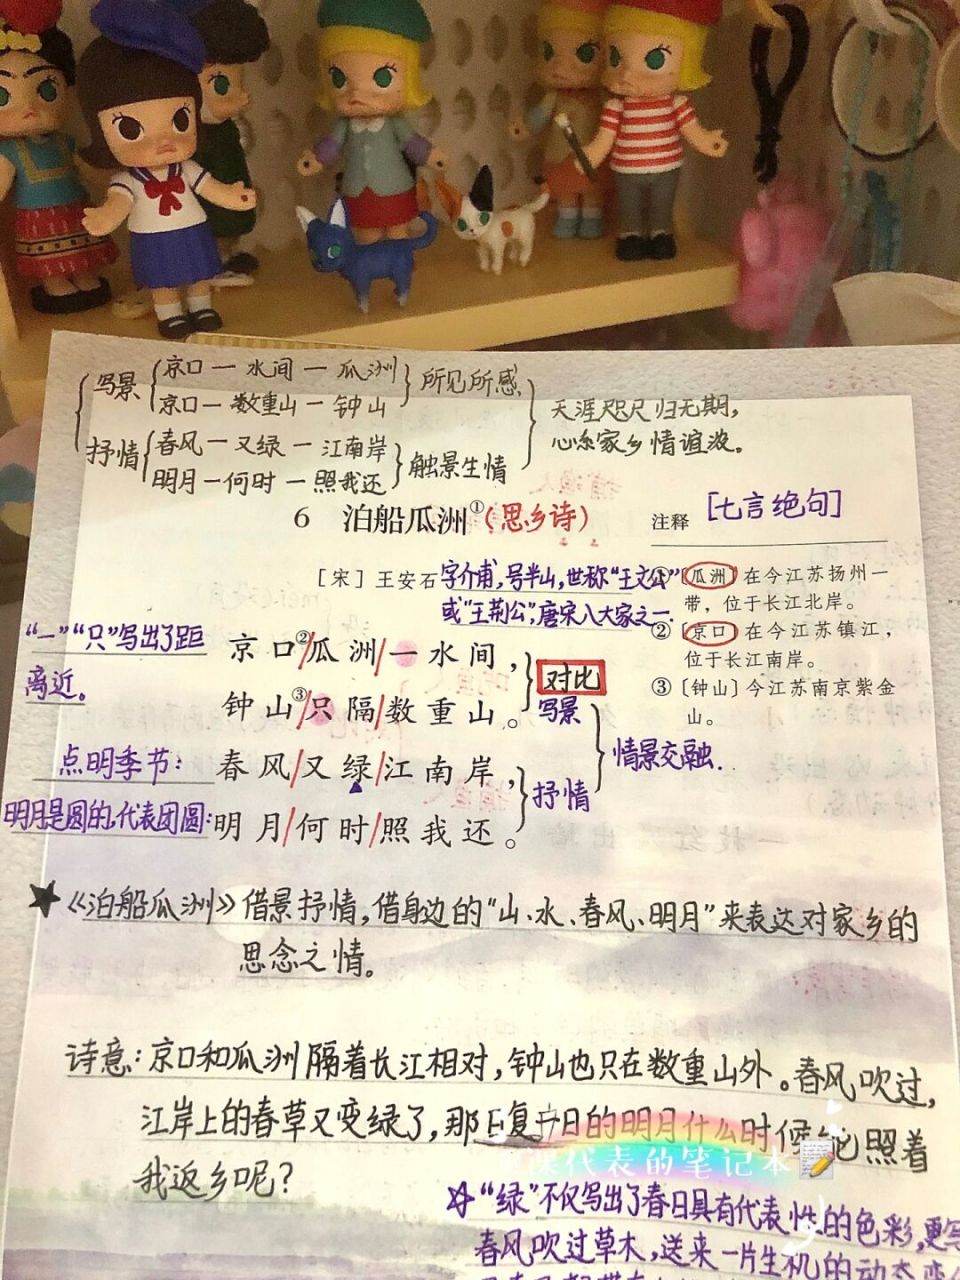 写景
京口一水间一瓜洲
京口一数重山一钟山
所见所感
抒情
春风一又绿一江南岸
明月一何时一照我还
触景生情
天涯咫尺归无期，
心系家乡情谊浓。
6 泊船瓜洲①(思乡诗)
注释 [七言绝句]
［宋］王安石
字介甫,号半山,世称“王文公”
或“王荆公”,唐宋八大家之一
①〔瓜洲〕在今江苏扬州一
带，位于长江北岸。
②〔京口〕在今江苏镇江，
位于长江南岸。
③〔钟山〕今江苏南京紫金
山。
“一”“只”写出了距
离近。
京口②/瓜洲/一水间，
钟山③/只隔/数重山。
对比
写景
点明季节:
春风/又绿/江南岸，
明月是圆的,代表团圆:
明月/何时/照我还。
抒情
情景交融.
★《泊船瓜洲》借景抒情,借身边的“山、水、春风、明月”来表达对家乡的
思念之情。
诗意:京口和瓜洲隔着长江相对,钟山也只在数重山外。春风吹过,
江岸上的春草又变绿了,那日复一日的明月什么时候 照着
我返乡呢?
课代表的笔记本
☆“绿”不仅写出了春日具有代表性的色彩,更写
春风吹过草木,送来一片生机的动态变